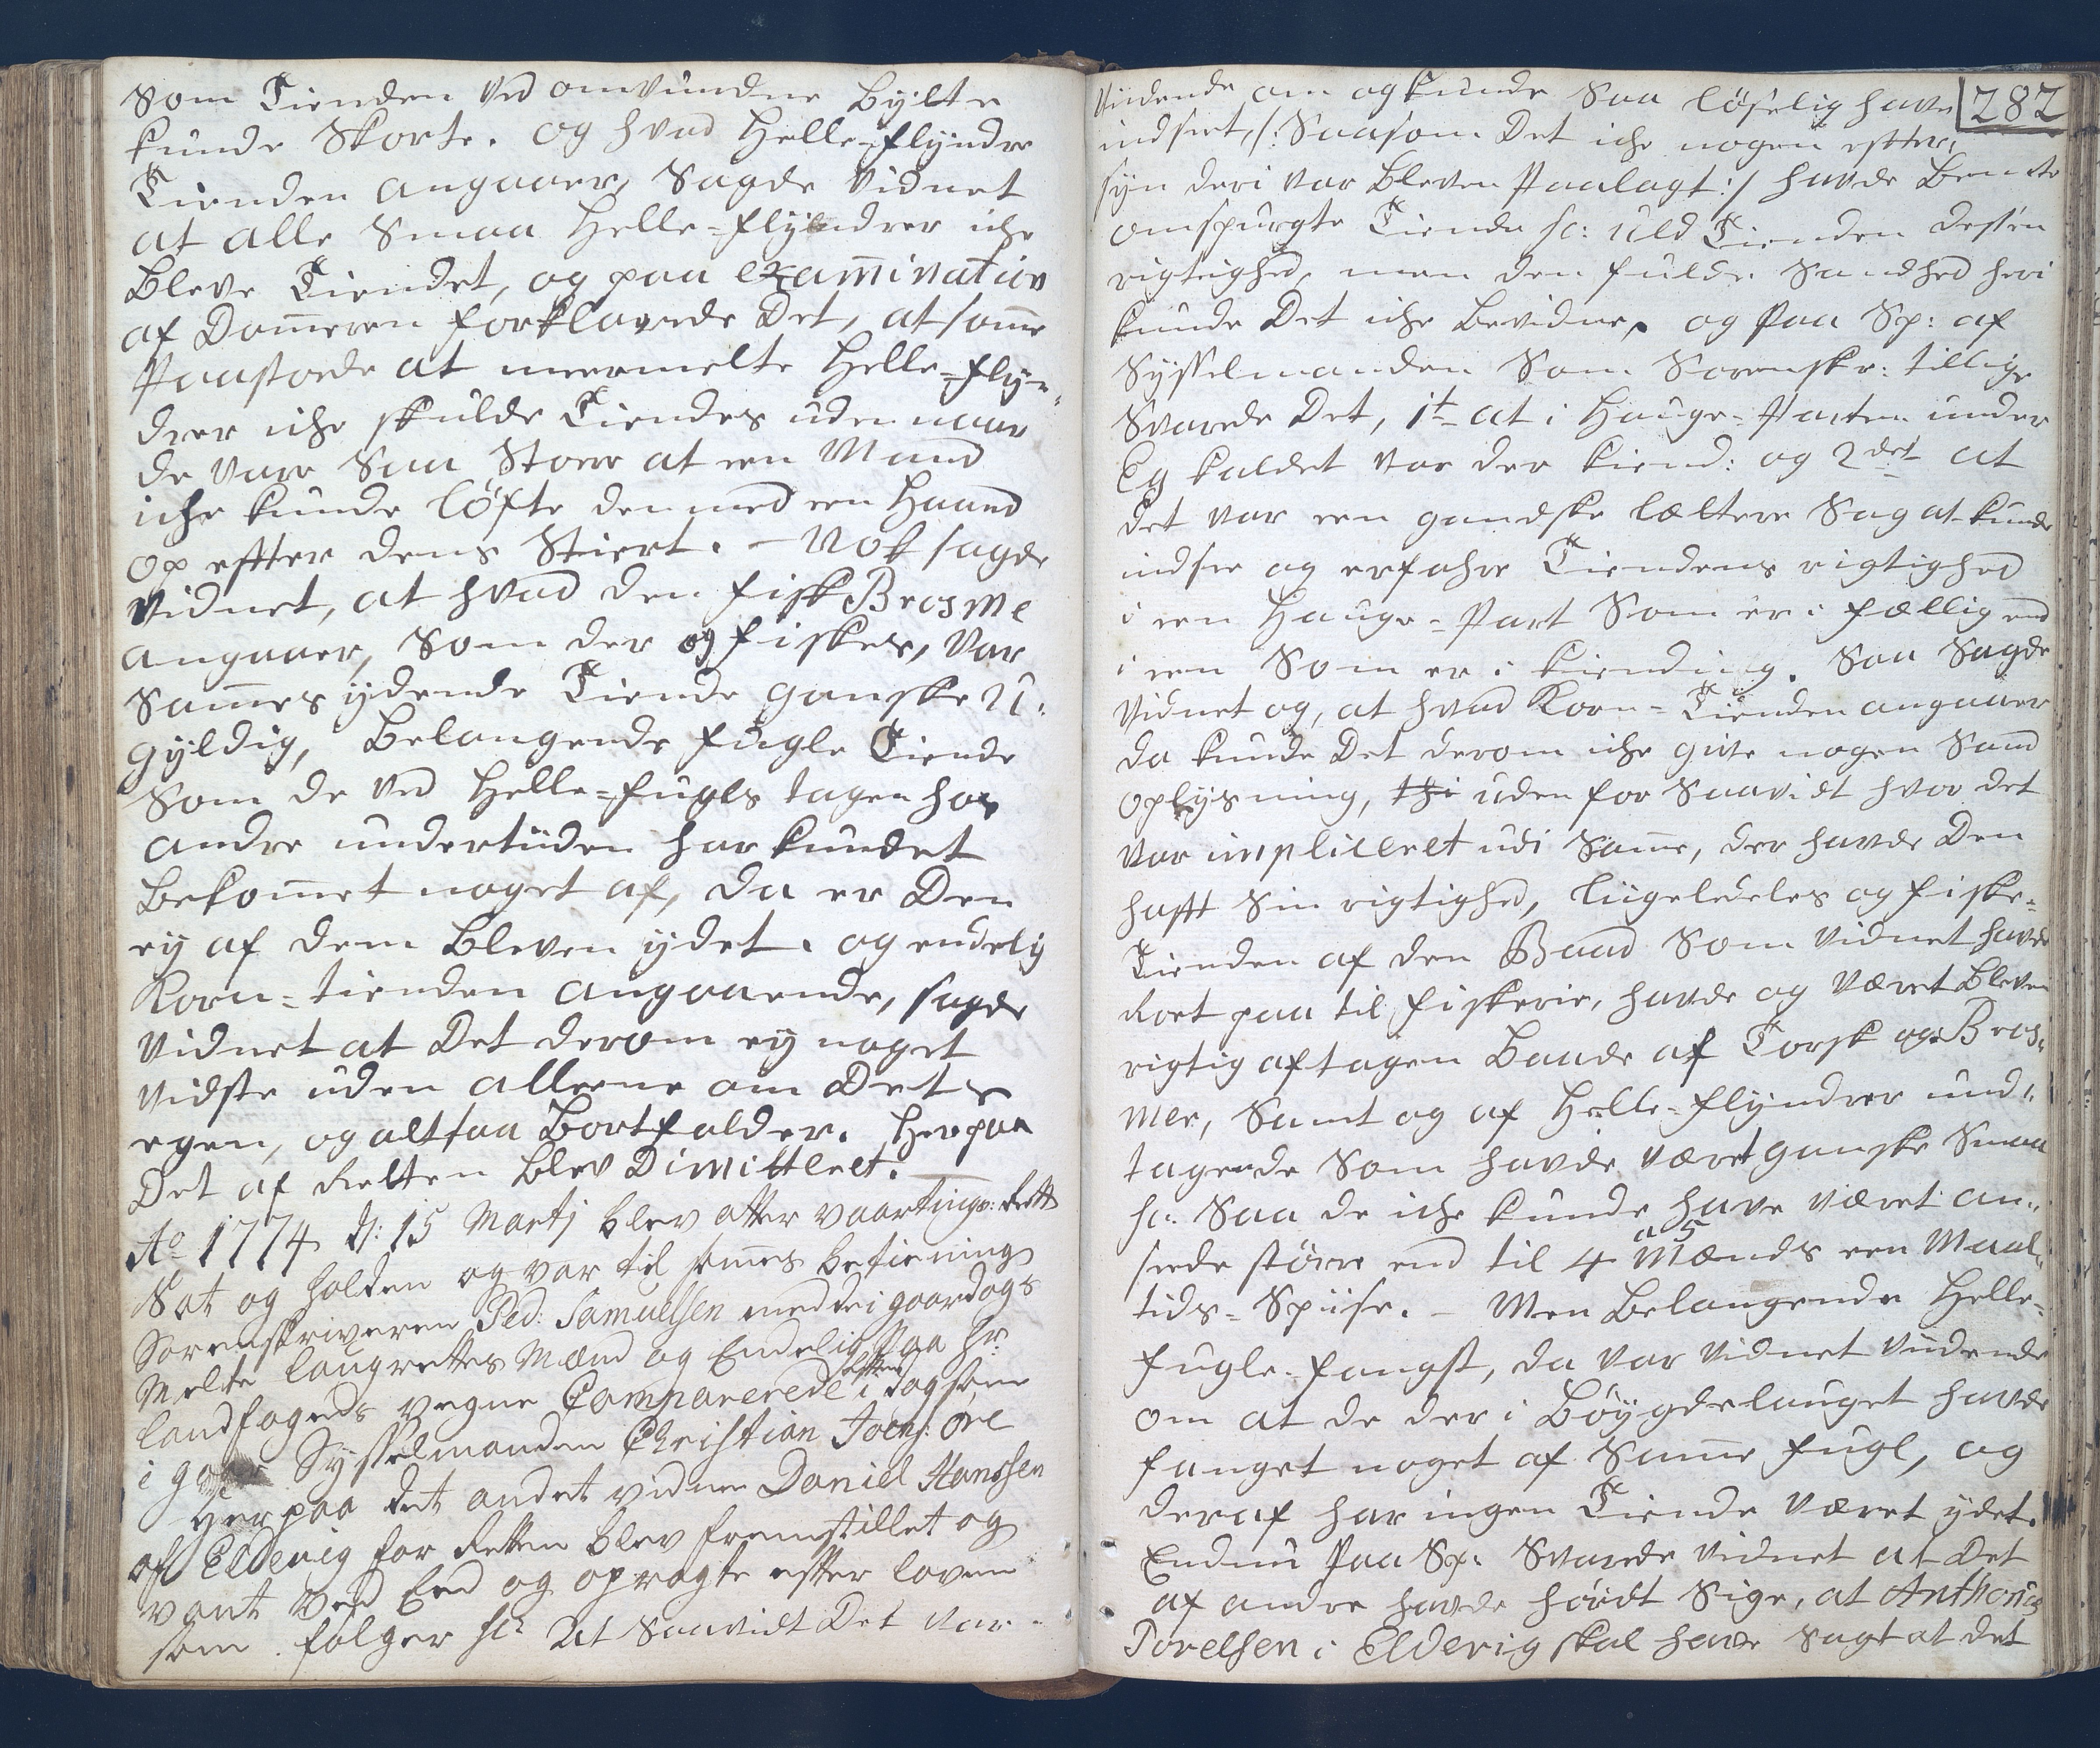 Som Tienden ved omvundne Bylte
kunde Skorte. og hvad Helle-flyndre
Tienden angaaer, Sagde Vidnet
at alle Smaa Helle-flyndrer iche
Bleve Tiendet, og paa examination
af Dom̄eren forklarede Det, at som̄e
Paastode at meermelte Helle-flyn-
drer iche skulde Tiendes uden naar
de vare Saa Store at een Mand
iche kunde løfte den med een Haand
op efter dens Stiert. – Nok sagde
Vidnet, at hvad den fisk Brosme
angaaer, Som der og fiskes, var
Sam̄es ydende Tiende ganske U-
gyldig, Belangende fugle Tiende
Som de ved Helle-fugls tagen hos
andre undertiiden har kundet
Bekom̄et noget af, da er Den
ey af dem Bleven ydet. og endelig
Korn-tienden angaaende, sagde
Vidnet at Det derom ey noget
Vidste uden alleene om Dets
egen, og altsaa Bortfalder. Herpaa
Det af Retten blev Dimitteret.
Ao 1774 d: 15 Martj blev atter vaartings: Rett
Sat og holden og var til sam̄es betiening
Sorenskriveren Ped: Samuelsen med de i gaardags
Melte laugrettes Mænd og Endelig Paa Hr:
landfogeds vegne Comparerede i dag som
i gaar Sysselmanden Christian Joens: Øre
Herpaa det andet vidne Daniel Hanssen
af Eldevig for Retten blev fremstillet og
vant ved Eed og opragte efter loven
som følger sc: At Saavidt Det var
282
Viidende om og kunde Saa løselig have
indseet, /: Saasom Det iche nogen efter-
syn deri var Bleven Paalagt :/ havde Bemte
omspurgte Tiende sc: Uld Tienden dessen
rigtighed, men den fulde Sandhed heri
kunde Det iche Bevidne, og Paa Sp: af
Sysselmanden Som Sorenskr: tillige
Svarede Det, 1t at i Hauge-Parten under
Eg kaldet var der kiend: og 2det at
det var een gandske lættere Sag at kunde
indsee og erfahre Tiendens rigtighed
i een Hauge-Part Som er i fællig end
i een Som er i kiending. Saa Sagde
Vidnet og, at hvad Korn-Tienden angaaer
da kunde Det derom iche give nogen Sand
oplysning, thi uden for Saavidt hvor det
var impliceret udi Sam̄e, der havde Den
hafft Sin rigtighed, liigeledeles og fiske-
Tienden af den Baad Som Vidnet havde
Roet paa til fiskerie, havde og været Bleven
rigtig aftagen Baade af Torsk og Bros-
mer, Samt og af Helle-flyndrer und-
tagende Som havde været ganske Smaa
sc: Saa de iche kunde have været an-
seede større end til 4 a 5 Mænds een Maal-
tids-Spiise. – Men Belangende Helle-
fugle-fangst, da var Vidnet Viidende
om at de der i Bøygdelauget havde
fanget noget af Sam̄e fugl, og
deraf har ingen Tiende været ydet.
Endnu Paa Sp: Svarede Vidnet at Det
af andre havde hördt Sige, at Anthonius
Porelsen i Elderig skal have sagt at det